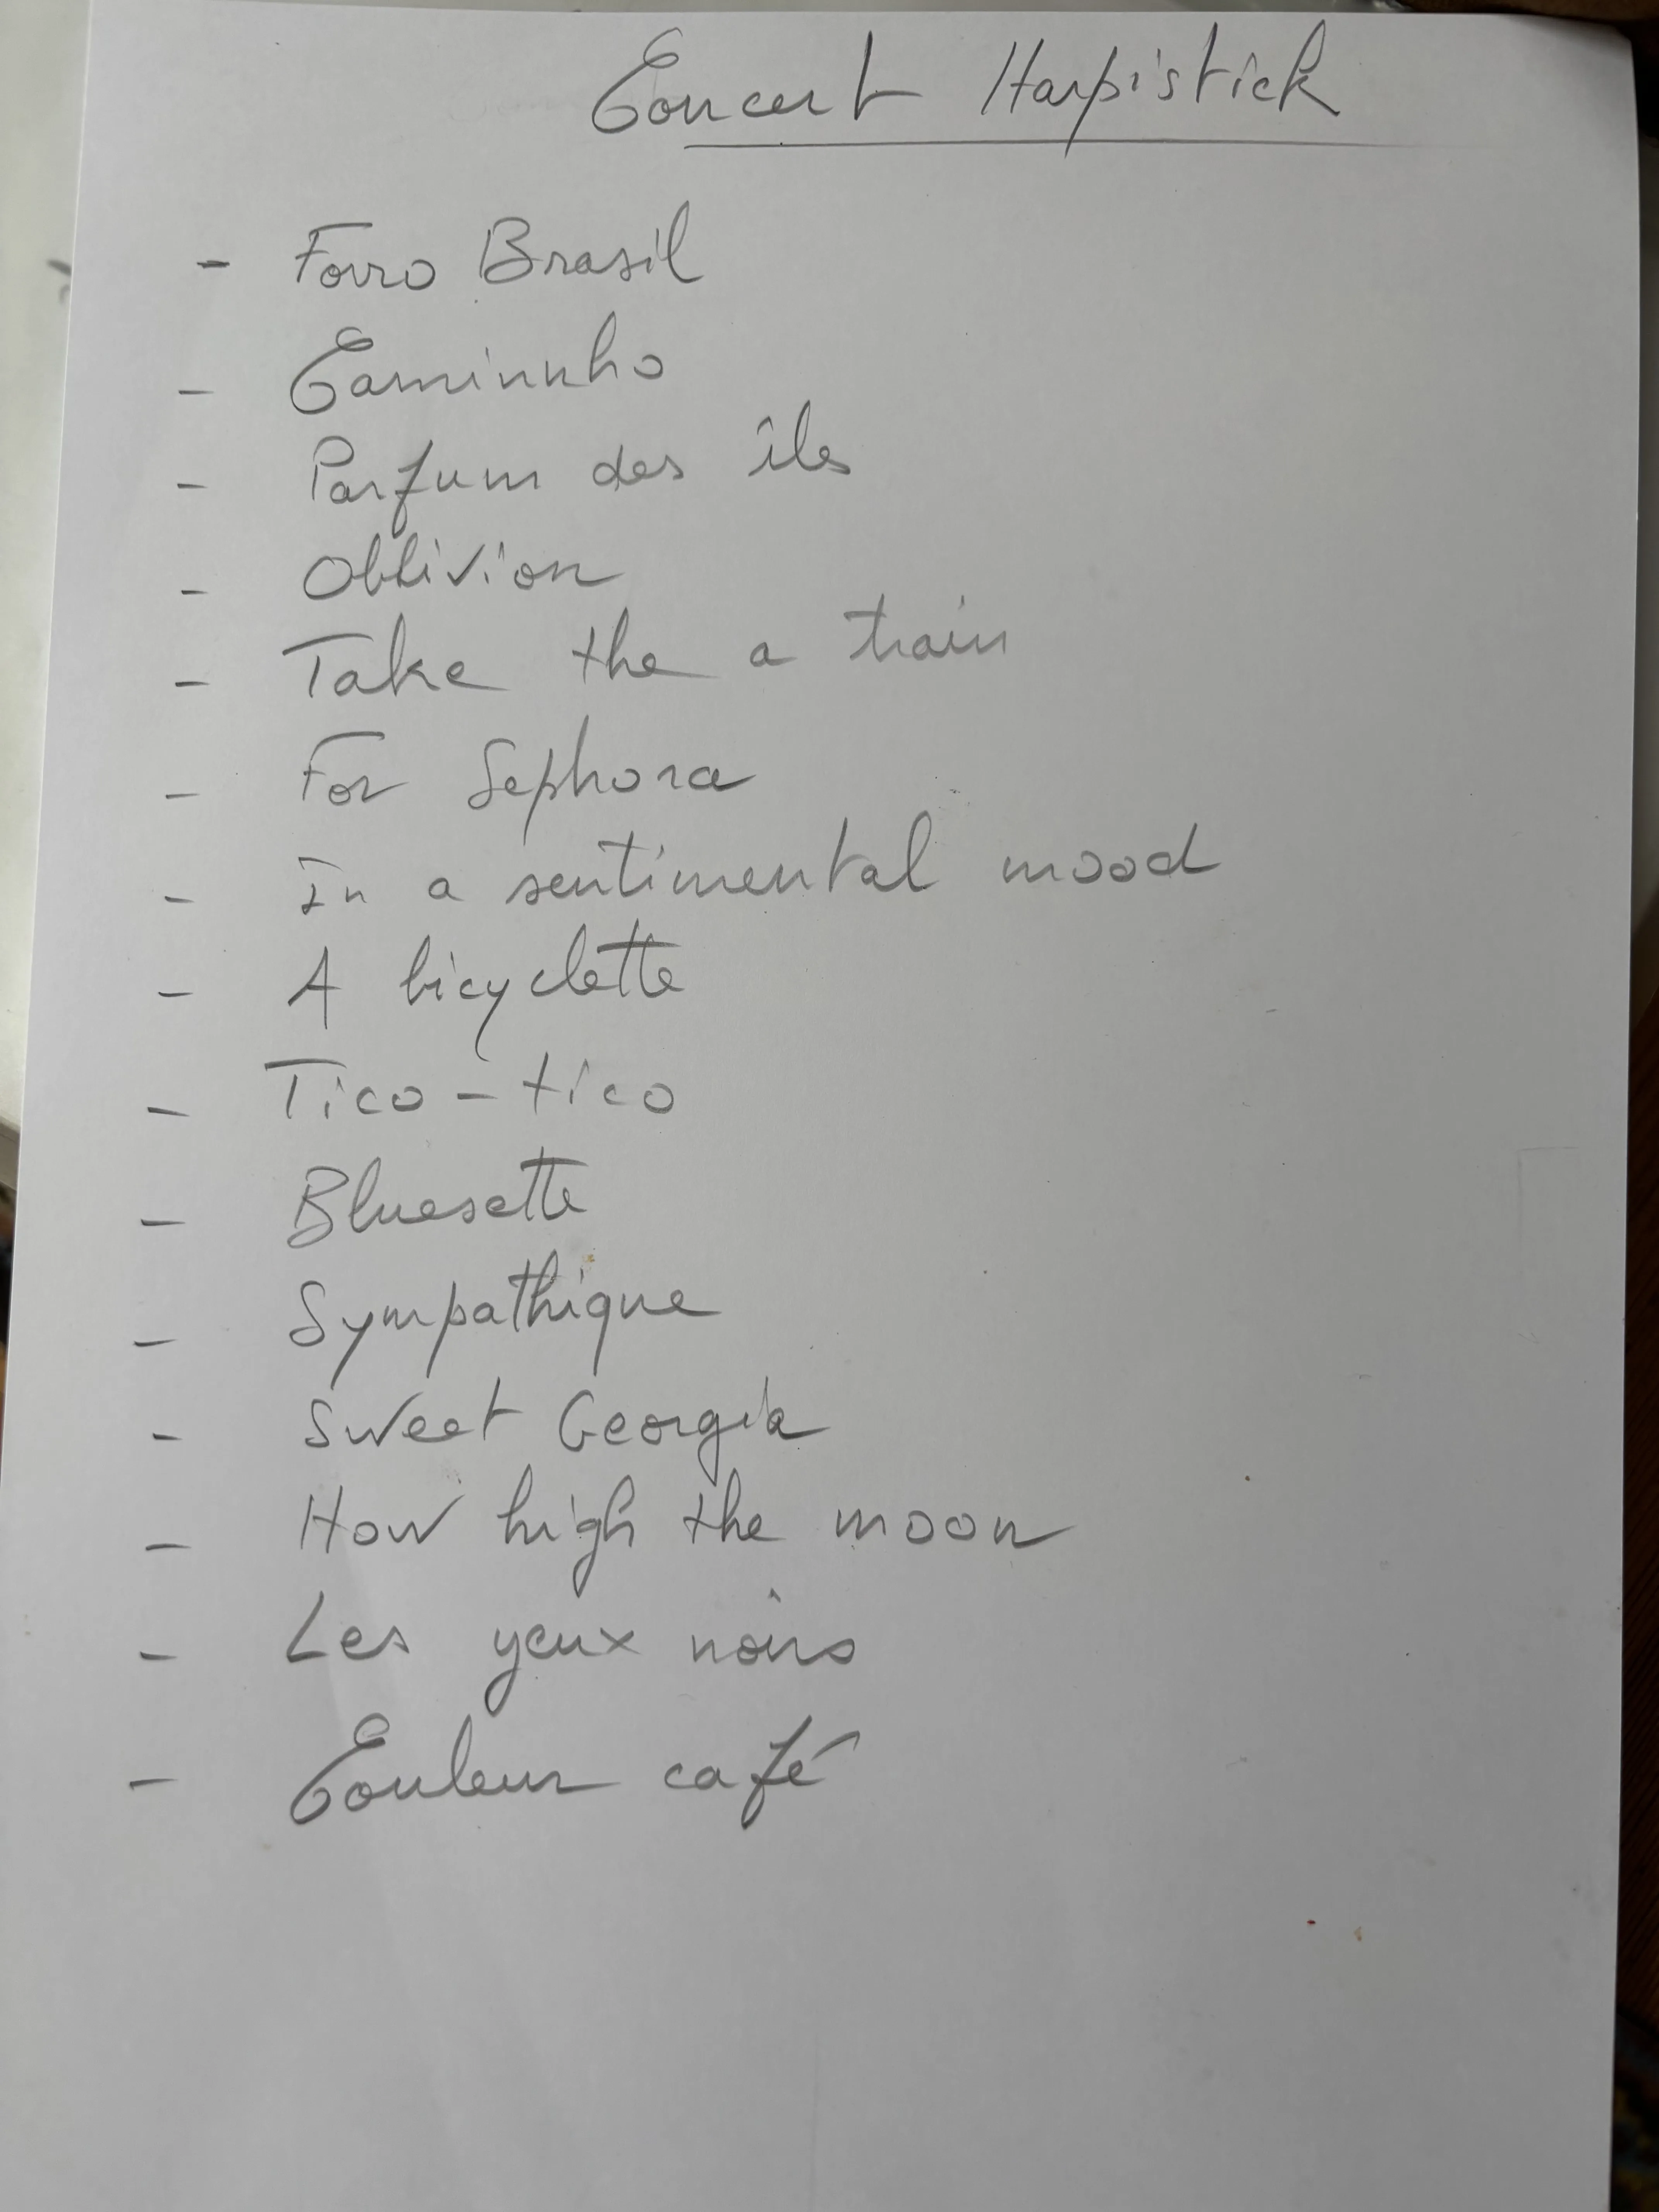 Concert Harpistick
- Forro Brasil
- Caminnho
- Parfum des îles
- Oblivion
- Take the a train
- For Sephora
- In a sentimental mood
- A bicyclette
- Tico-tico
- Bluesette
- Sympathique
- Sweet Georgia
- How high the moon
- Les yeux noirs
- Couleur café